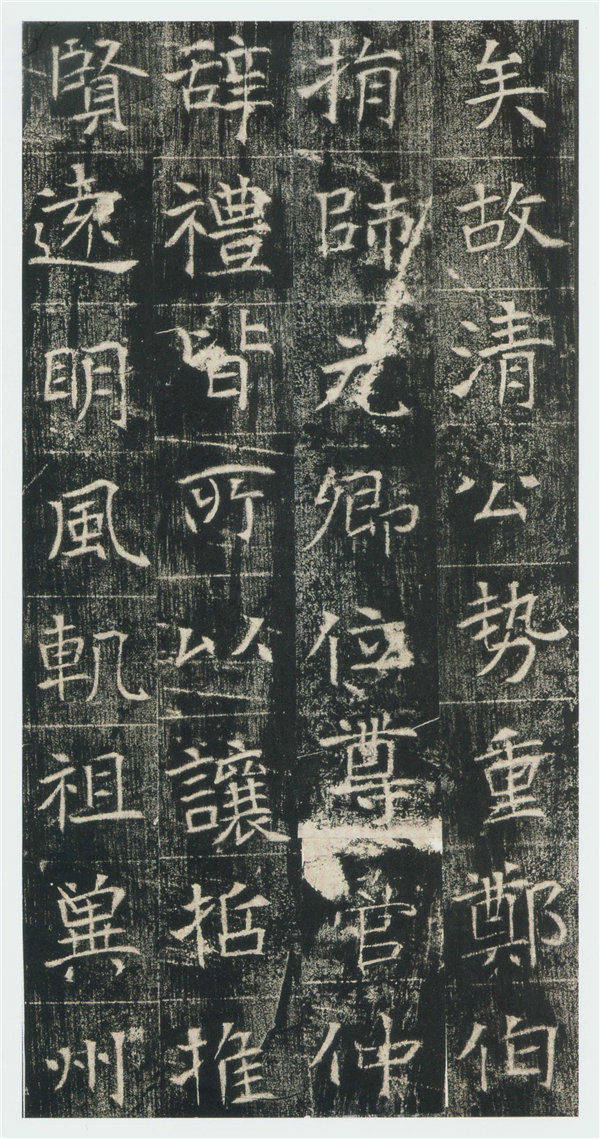 矣故清公勢重鄭伯
捐師元卿位尊菅仲
辭禮皆所以讓哲推
賢遠明風軌祖冀州